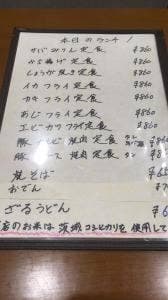 本日のランチ!
さばみりん定食 ¥860
から揚げ定食 ¥860
しょうが焼き定食 ¥860
イカフライ定食 ¥860
カキフライ定食 ¥860
あじフライ定食 ¥860
エビカツフライ定食 ¥860
豚 焼肉定食 ¥860
豚 ース焼肉定食 ¥860
焼そば ¥65
おでん ¥70
ざるうどん ¥6
店のお米は茨城コシヒカリを使用して